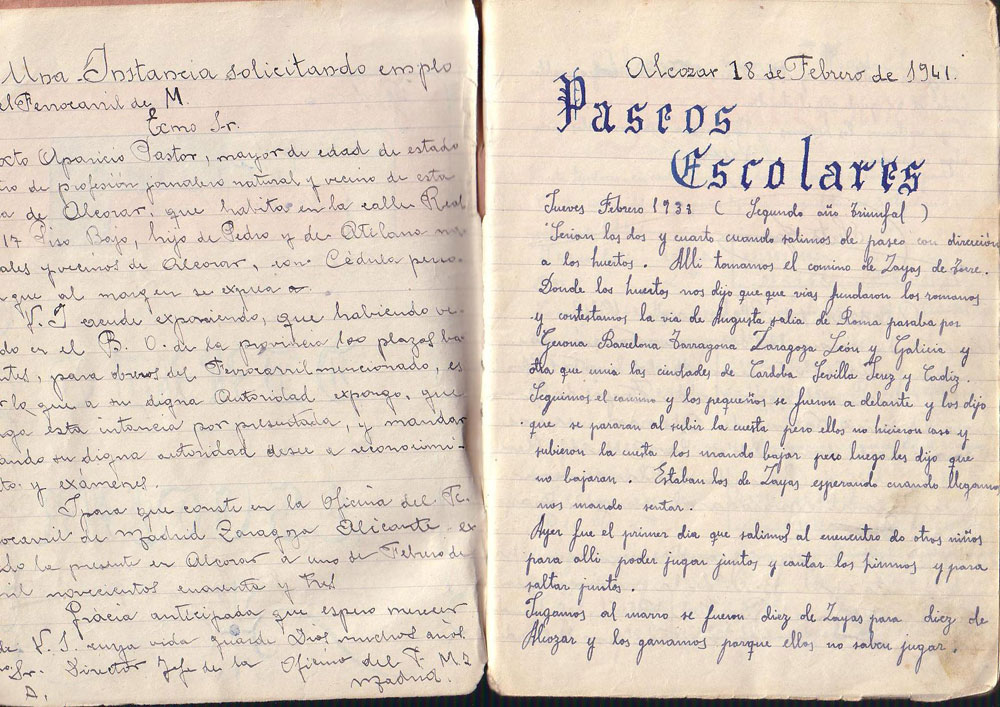 Una Instancia solicitando emplo
el Ferrocarril de M.
Ecmo Sr.
octo Aparicio Pastor, mayor de edad de estado
ro de profesión jornalero natural y vecino de esta
a de Alcozar, que habita en la calle Real
17 Piso Bajo, hijo de Pedro y de Atilana
ales y vecinos de Alcozar, con Cédula perso
que al margen se expresa
V. I acude exponiendo, que habiendo
do en el B. O. de la provincia 100 plazas
tes, para obreros del Ferrocarril mencionado, es
r lo que a su digna Autoridad expongo, que
ga esta intancia por presentada, y mandar
ando su digna autoridad desee a reconocimi-
to y exámenes.
I para que conste en la Oficina del Fe
rocarril de Madrid Zaragoza Alicante
do la presente en Alcozar a uno de Febrero de
il novecientos cuarenta y tres
Grácia anticipada que espero merecer
de V. I. cuya vida guarde Dios muchos años
Sr. Director Jefe de la Oficina del F. M. Z
A. Madrid.
Alcozar 18 de Febrero de 1941.
Paseos
Escolares
Jueves Febrero 1938 ( Segundo año triunfal )
Serian las dos y cuarto cuando salimos de paseo con dirección
a los huertos. Alli tomamos el camino de Zayas de Torre.
Donde los huertos nos dijo que que vias fundaron los romanos
y contestamos la via de Augusta salia de Roma pasaba por
Gerona Barcelona Tarragona Zaragoza León y Galicia y
otra que unia las ciudades de Cordoba Sevilla Jerez y Cadiz.
Seguimos el camino y los pequeños se fueron a delante y los dijo
que se pararan al subir la cuesta pero ellos no hicieron caso y
subieron la cuesta los mando bajar pero luego les dijo que
no bajaran. Estaban los de Zayas esperando cuando llegamos
nos mando sentar.
Ayer fue el primer dia que salimos al encuentro de otros niños
para alli poder jugar juntos y cantar los himnos y para
saltar juntos.
Jugamos al marro se fueron diez de Zayas para diez de
Alcozar y los ganamos porque ellos no saben jugar.